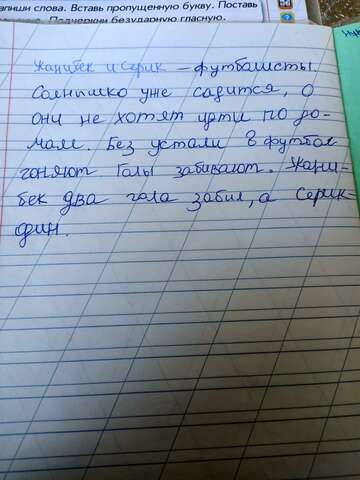 апиши слова. Вставь пропущенную букву. Поставь
Подчеркни безударную гласную.
Жанибек и Серик – футболисты.
Солнышко уже садится, о
они не хотят идти по ро-
мам. Без устали в футбол
гоняют. Голы забивают. Жани-
бек два гола забил, а Серик-
дин.